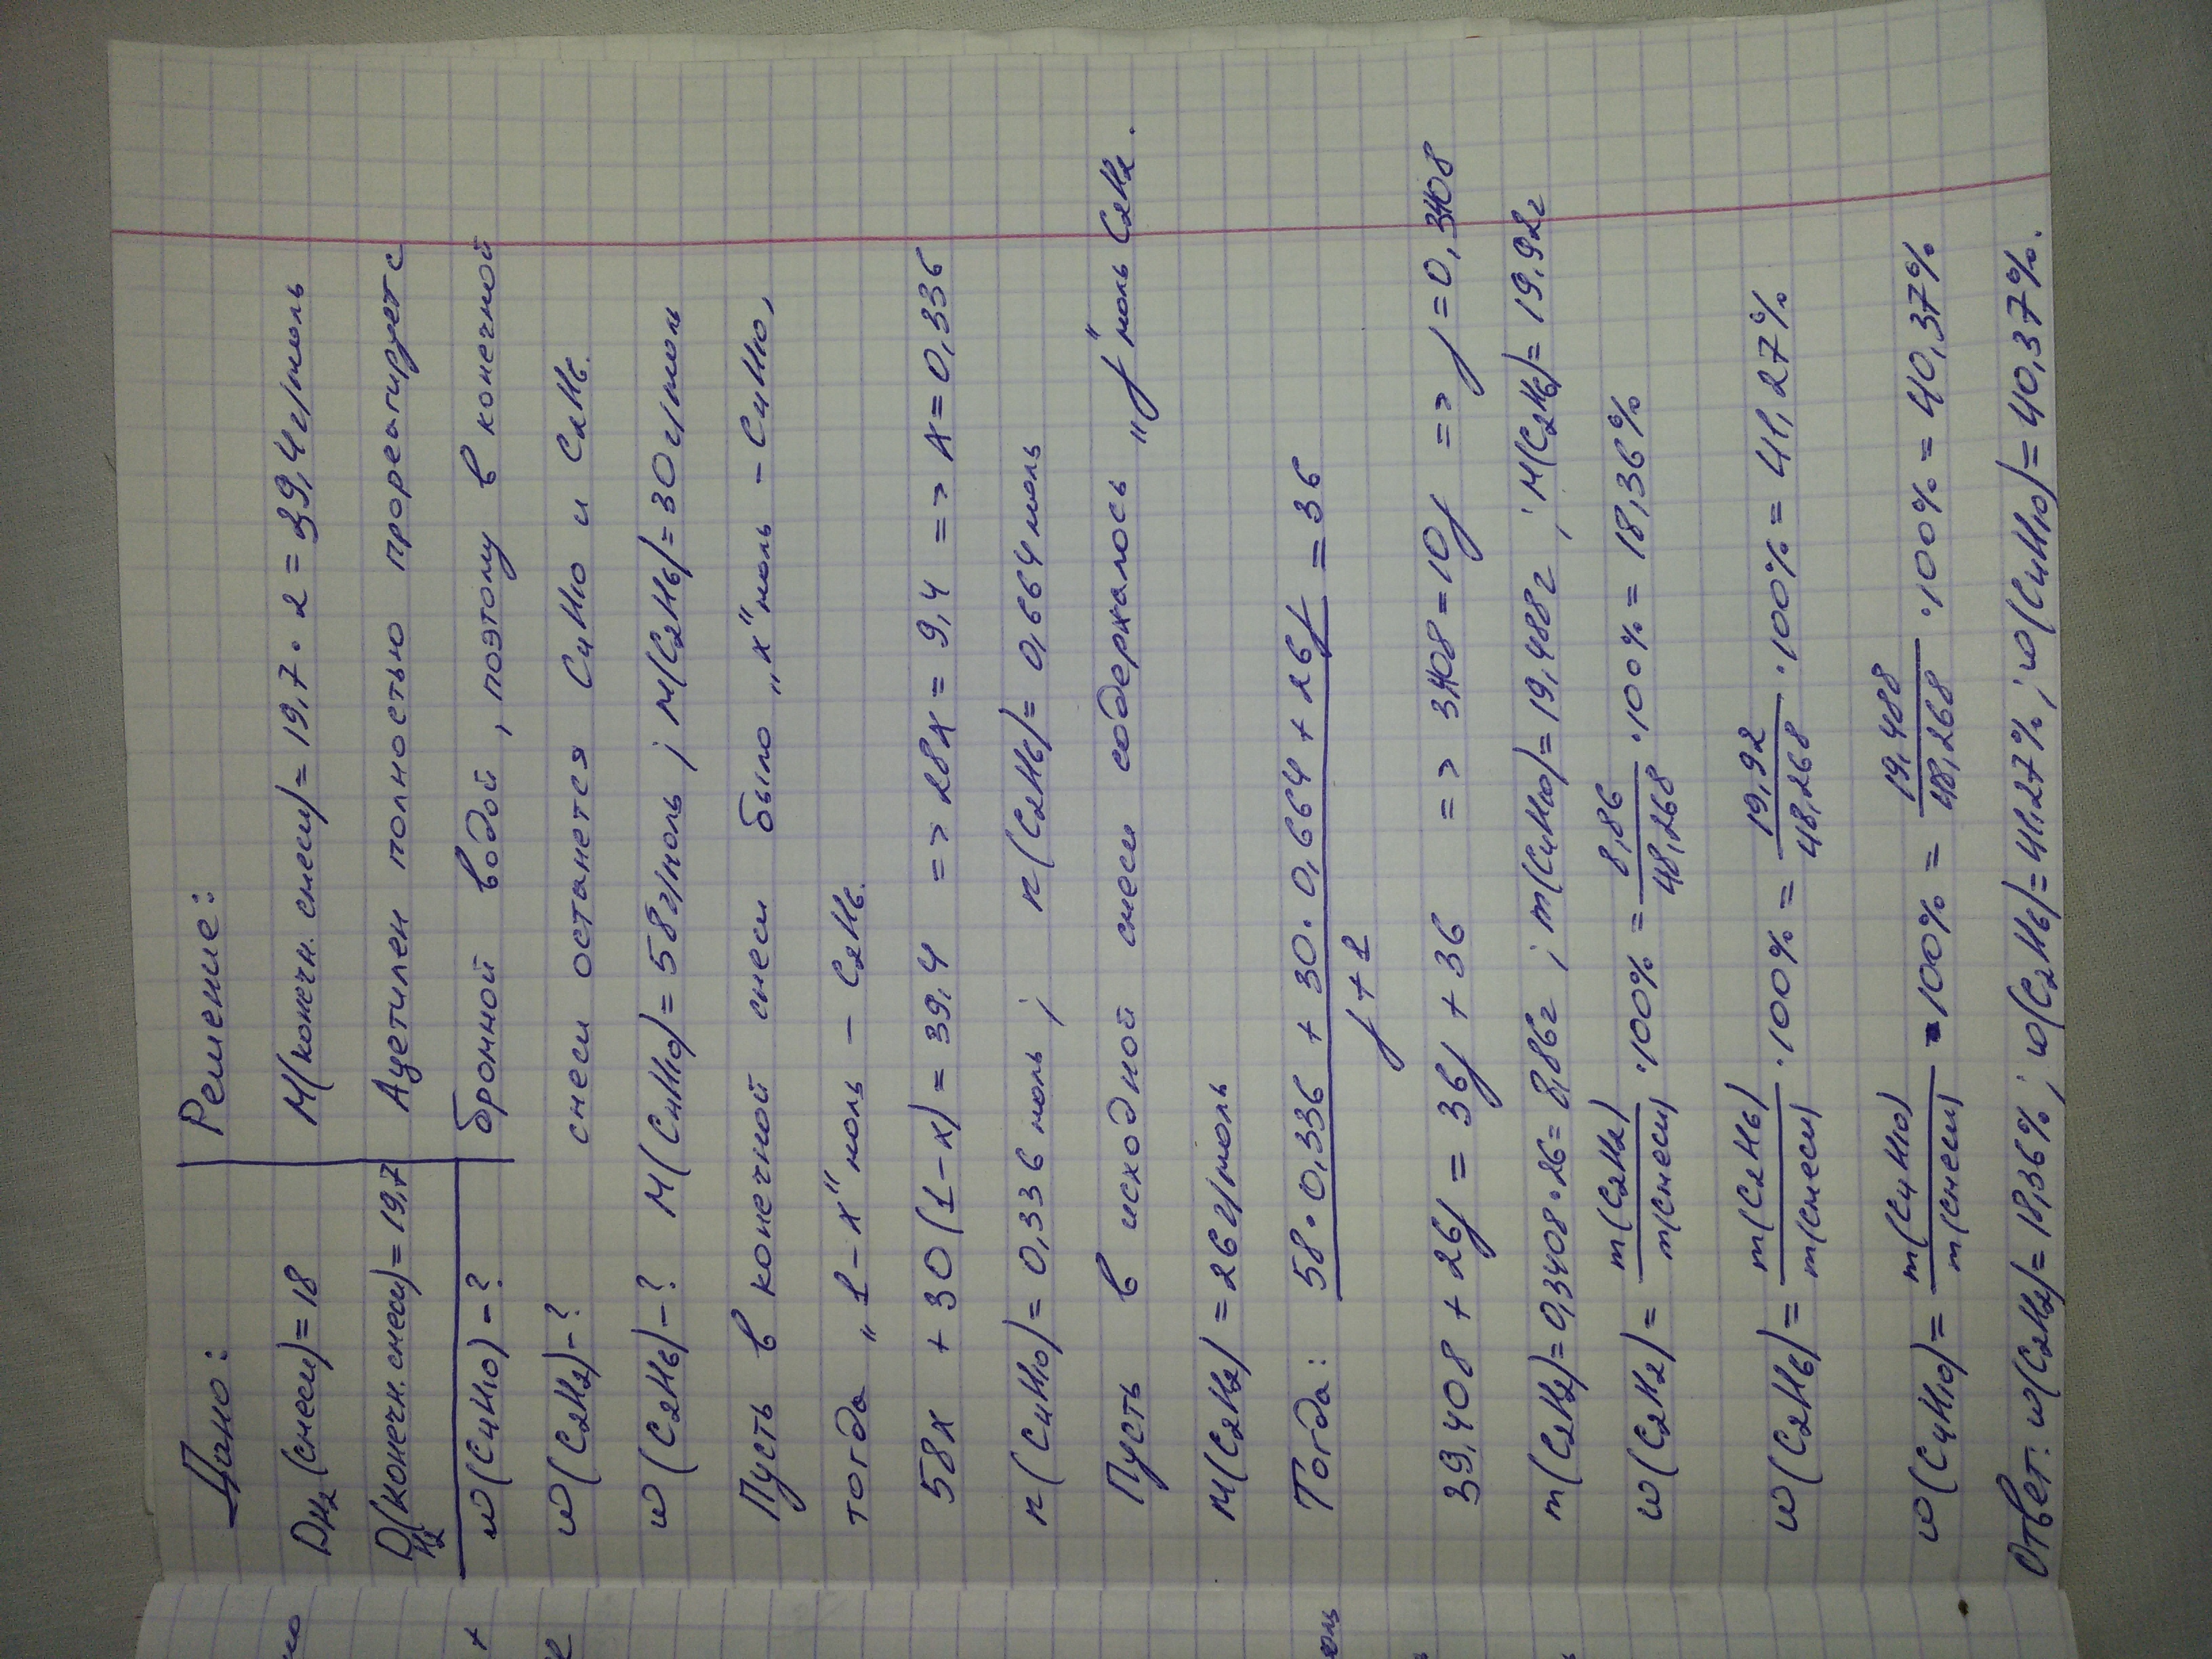 Дано:
Решение:
D_H₂(смеси)=18
M(конечн. смеси)=19,7·2=39,4г/моль
D_H₂(конечн. смеси)=19,7
Ацетилен полностью прореагирует с
w(C₄H₁₀)-?
бромной водой, поэтому в конечной
w(C₂H₂)-?
смеси останется C₄H₁₀ и C₂H₆.
w(C₂H₆)-?
M(C₄H₁₀)=58г/моль; M(C₂H₆)=30г/моль
Пусть в конечной смеси было „x"моль - C₄H₁₀,
тогда „1-x"моль - C₂H₆.
58x + 30(1-x)=39,4 => 28x=9,4 => x=0,336
n(C₄H₁₀)=0,336 моль; n(C₂H₆)=0,664моль
Пусть в исходной смеси содержалось „y"моль C₂H₂.
M(C₂H₂)=26г/моль
Тогда: (58·0,336 + 30·0,664 + 26y)/(y+1) = 36
39,408 + 26y = 36y + 36 => 3,408=10y => y=0,3408
m(C₂H₂)=0,3408·26=8,86г; m(C₄H₁₀)=19,488г; M(C₂H₆)=19,92г
w(C₂H₂)= m(C₂H₂)/m(смеси) ·100% = 8,86/48,268 ·100% = 18,36%
w(C₂H₆)= m(C₂H₆)/m(смеси) ·100% = 19,92/48,268 ·100% = 41,27%
w(C₄H₁₀)= m(C₄H₁₀)/m(смеси) ·100% = 19,488/48,268 ·100% = 40,37%
Ответ: w(C₂H₂)=18,36%; w(C₂H₆)=41,27%; w(C₄H₁₀)=40,37%.